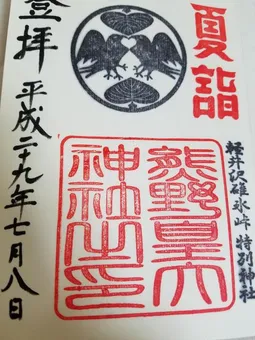 夏詣
軽井沢碓氷峠 特別神社
熊野皇大
神社之印
登拝 平成二十九年七月八日